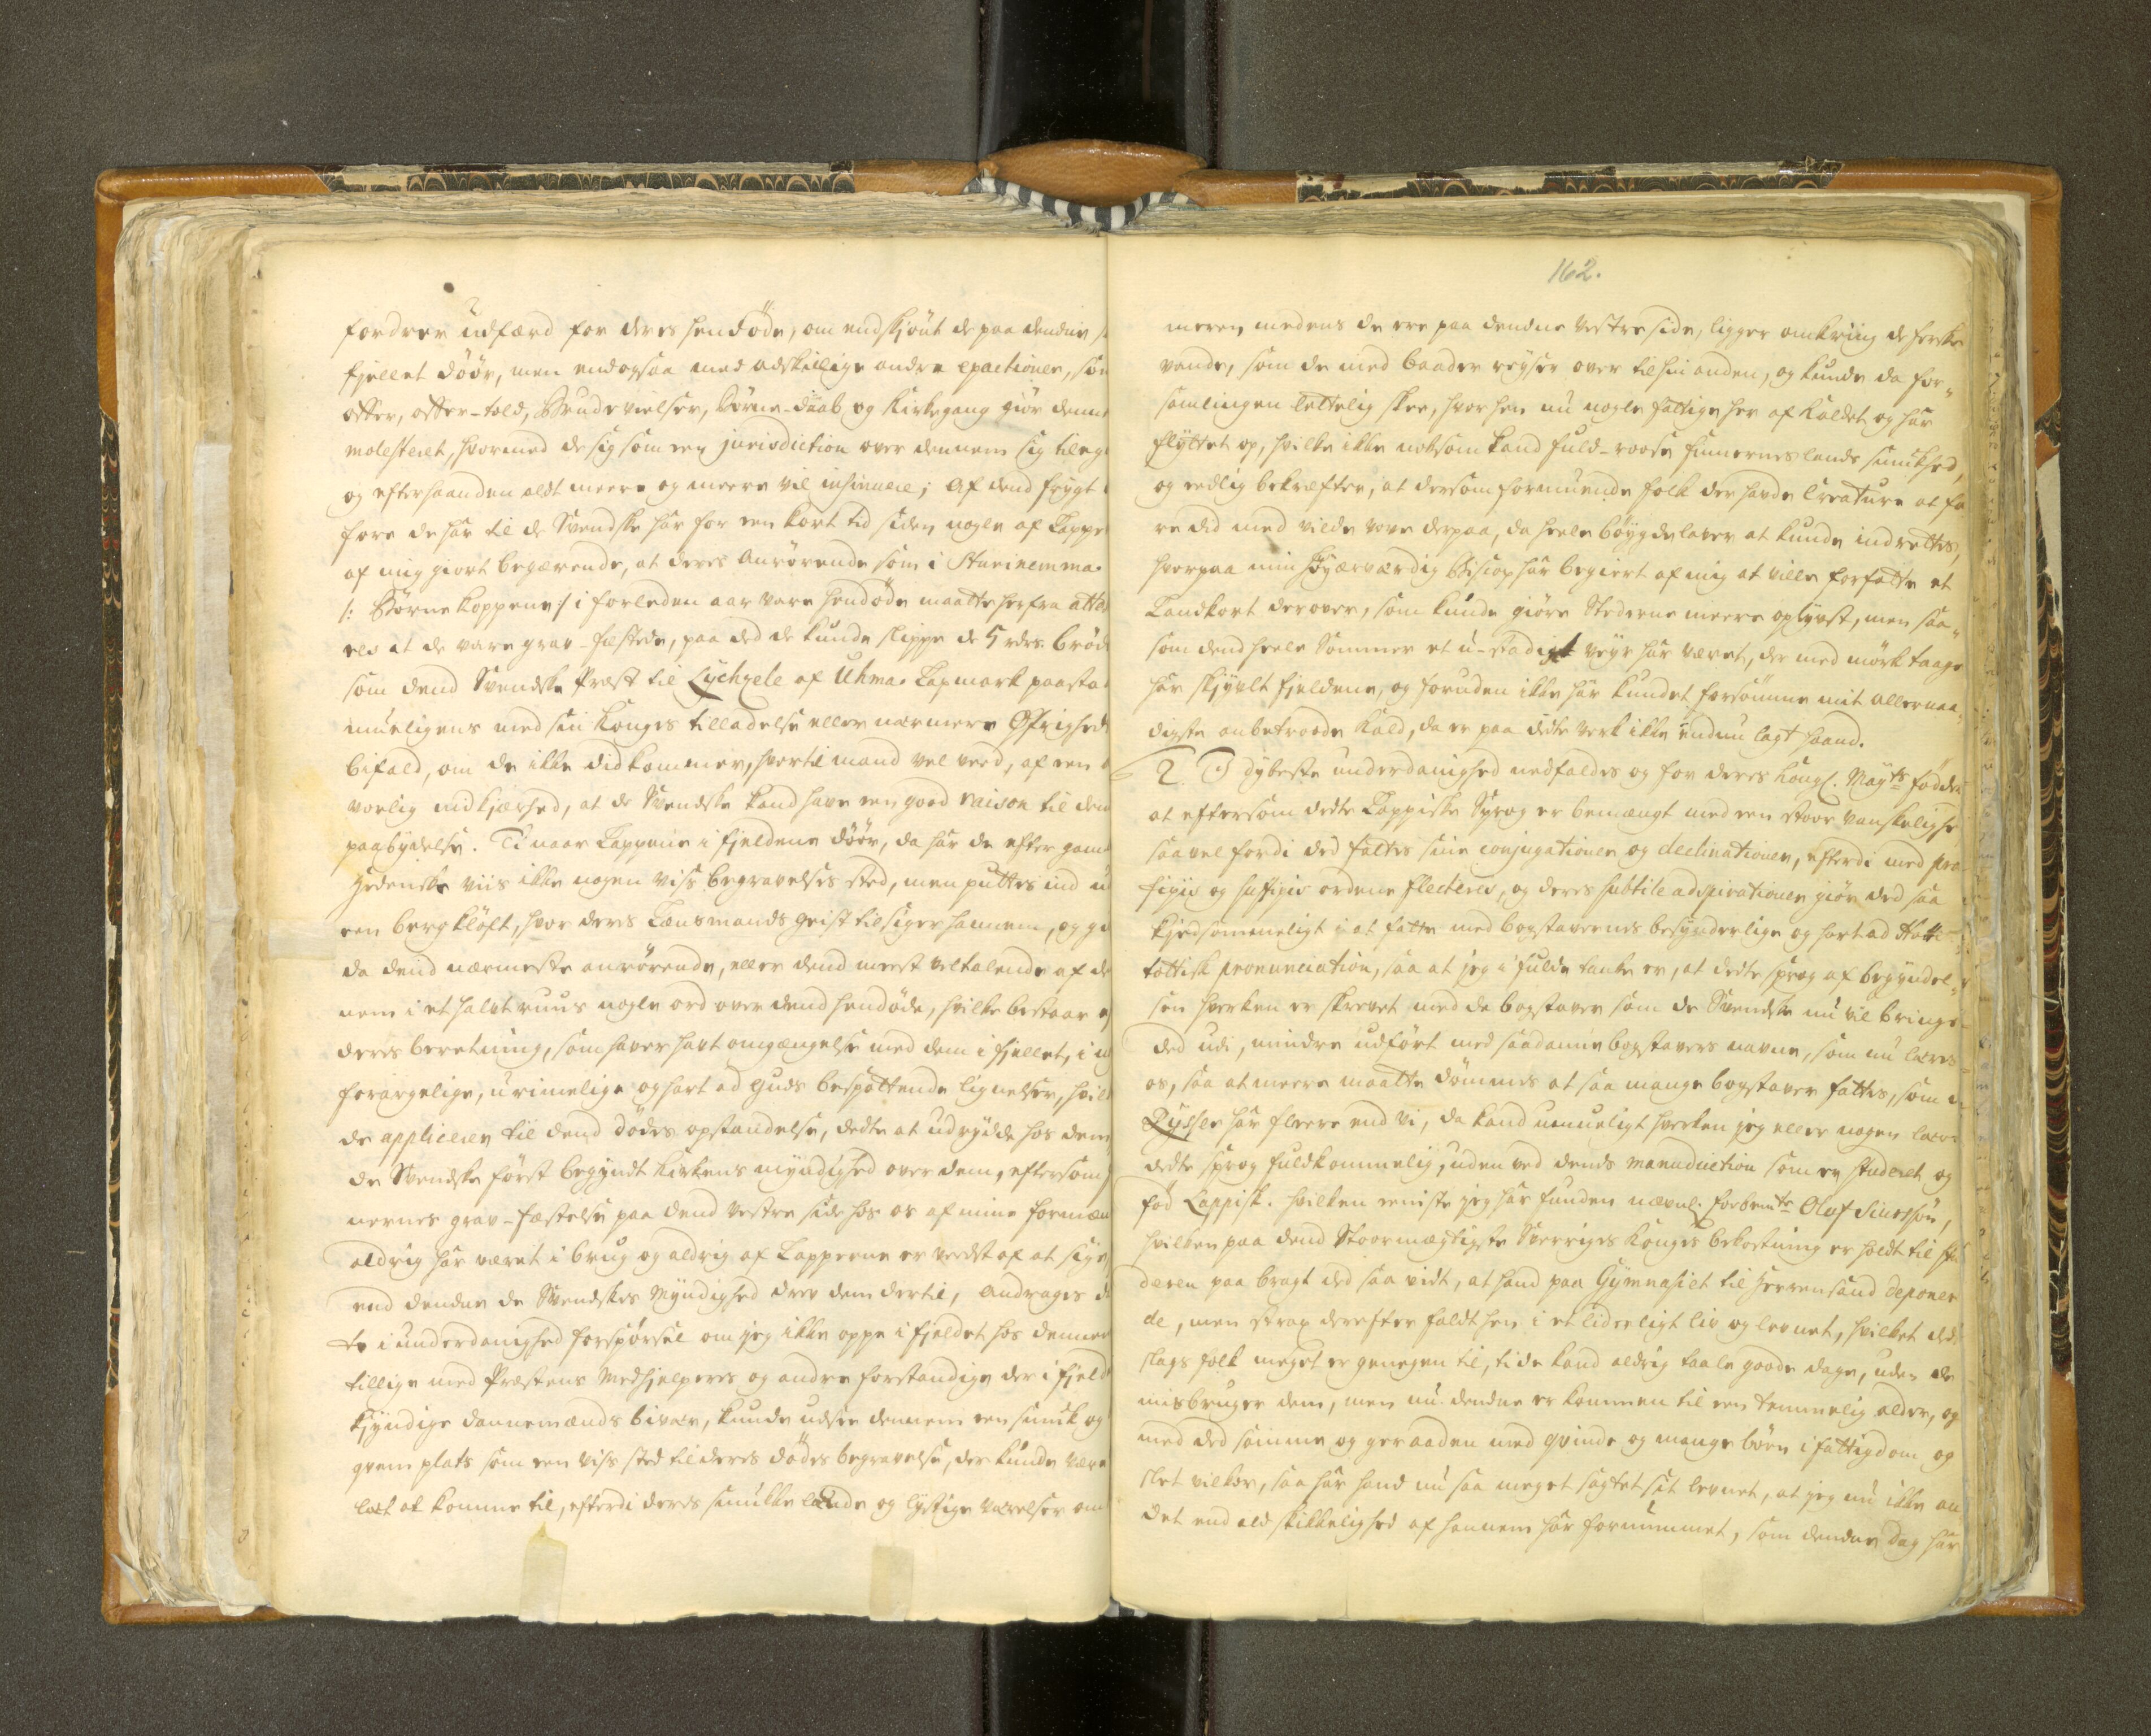 fordrer udfærd for deres hendöde, om endskjönt de paa denne
fjellet döör, men endogsaa med adskillige andre epactioner, som
offer, offer-told, Brudevielser, Börne-daab og Kirkegang giör dennem
molesteret, hvormed de sig som een jurisdiction over dennem sig tileg
og efterhaanden aldt meere og meere vil insinuere; Af dend frygt
fore de har til de Svendske har for een kort tid siden nogle af Lappe
af mig giort begærende, at deres Anrörende som i Sturinemma
/: Börne Koppene :/ i forleden aar vare hendöde maatte herfra atte
res at de vare grav-fæstede, paa ded de kunde slippe de 5 rdr. bröde
som dend Svendske Præst til Lychsele af Uhma Lapmark paasta
mueligens med sin Konges tilladelse eller nærmere Öfrigheds
bifald, om de ikke did kommer, hvortil mand vel veed, af een
vorlig nidkjærhed, at de Svendske kand have een good raison til den
paabydelse. Ti naar Lapperne i fjeldene döör, da har de efter gam
hedenske viis ikke nogen viss begravelses sted, men puttes ind u
een berg klöft, hvor deres Lensmands geist tilsiger hannem, og gi
da dend nærmeste anrörende, eller dend meest veltalende af de
nem i et halvt ruus nogle ord over dend hendöde, hvilke bestaar e
deres beretning, som haver havt omgængelse med dem i fjellet, i u
forargelige, urimelige og hart ad Guds bespottende lignelser, hvilk
de applicerer til dend dödes opstandelse, dedte at udrydde hos dem
de Svendske först begyndt Kirkens myndighed over dem, eftersom
nernes grav-fæstelse paa dend vestre side hos os af mine formæn
aldrig har været i brug og aldrig af Lapperne er veedst af at sige
end denne de Svendskes Myndighed drev dem dertil, andrages d
te i underdanighed forspörsel om jeg ikke oppe i fjeldet hos dennem
tillige med Præstens Medhjelperes og andre forstandige der i fjeld
kyndige dannemænds bivær, kunde udsee dennem een smuck og
grem plats som een viss sted til deres dödes begravelse, der kunde være
læt at komme til, efterdi deres smukke lande og lystige værelser om
162.
meren medens de ere paa denne vestre side, ligger omkring de ferske
vande, som de med baader reyser over til hin anden, og kunde da for-
samlingen lættelig skee, hvor hen nu nogle fattige her af Kaldet og har
flyttet op, hvilke ikke noksom kand fuld-roose finnernes lands smukhed,
og redlig bekræfter, at dersom formuende folk der havde Creature at fø
re did med vilde vove derpaa, da heele böygdelaver at kunde indrettes,
hvorpaa min höyærværdig Biscop har begiert af mig at ville forfatte et
Landkort derover, som kunde giöre Stederne meere oplyst, men saa-
som dend heele Sommer et u-stadigt veyr har været, der med mörk taage
har skjult fjeldene, og foruden ikke har kundet forsömme mit allernaa-
digste anbetroede Kald, da er paa dette verk ikke endnu lagt haand.
2. I dybeste underdanighed nedfaldes og for deres Kongl. Mayts födder
at eftersom dette Lappiske Sprog er bemængt med een stoor vanskelighe
saavel fordi ded fattes sine conjugationer og declinationer, efterdi med præ
fixis og suffixis ordene flecteres, og deres subtile adspirationer giör ded saa
kjedsommeligt i at fatte med bogstavernes besynderlige og hart ad Hotti-
tottisk pronunciation, saa at jeg i fulde tanke er, at dette sprog af begyndel-
sen hverken er skrevet med de bogstaver som de Svendske nu vil bringe
ded udi, mindre udfört med saadanne bogstavers navne, som nu læres
os, saa at meere maatte dömmes at saa mange bogstaver fattes, som de
Rysser har fleere end vi, da kand umueligt hverken jeg eller nogen lære
dette sprog fuldkommelig, uden ved dends manuduction som er studeret og
föd Lappisk. hvilken eeniste jeg har funden nævnl: forbemte Oluf Siurssön,
hvilken paa dend Stoormægtigste Sverriges Konges bekostning er holdt til stu
deren paa bragt ded saa vidt, at hand paa Gymnasiet til Hernösand deponer
de, men strax derefter faldt hen i et liderligt liv og levnet, hvilket ded
slags folk meget er genegen til, ti de kand aldrig taale goode dage, uden de
misbruger dem, men nu denne er kommen til een temmelig alder, og
med ded samme og geraaden med qvinde og mange börn i fattigdom og
slet vilkor, saa har hand nu saa meget sagtet sit levnet, at jeg nu ikke an
det end ald skikkelighed af hannem har fornummet, som denne dag har